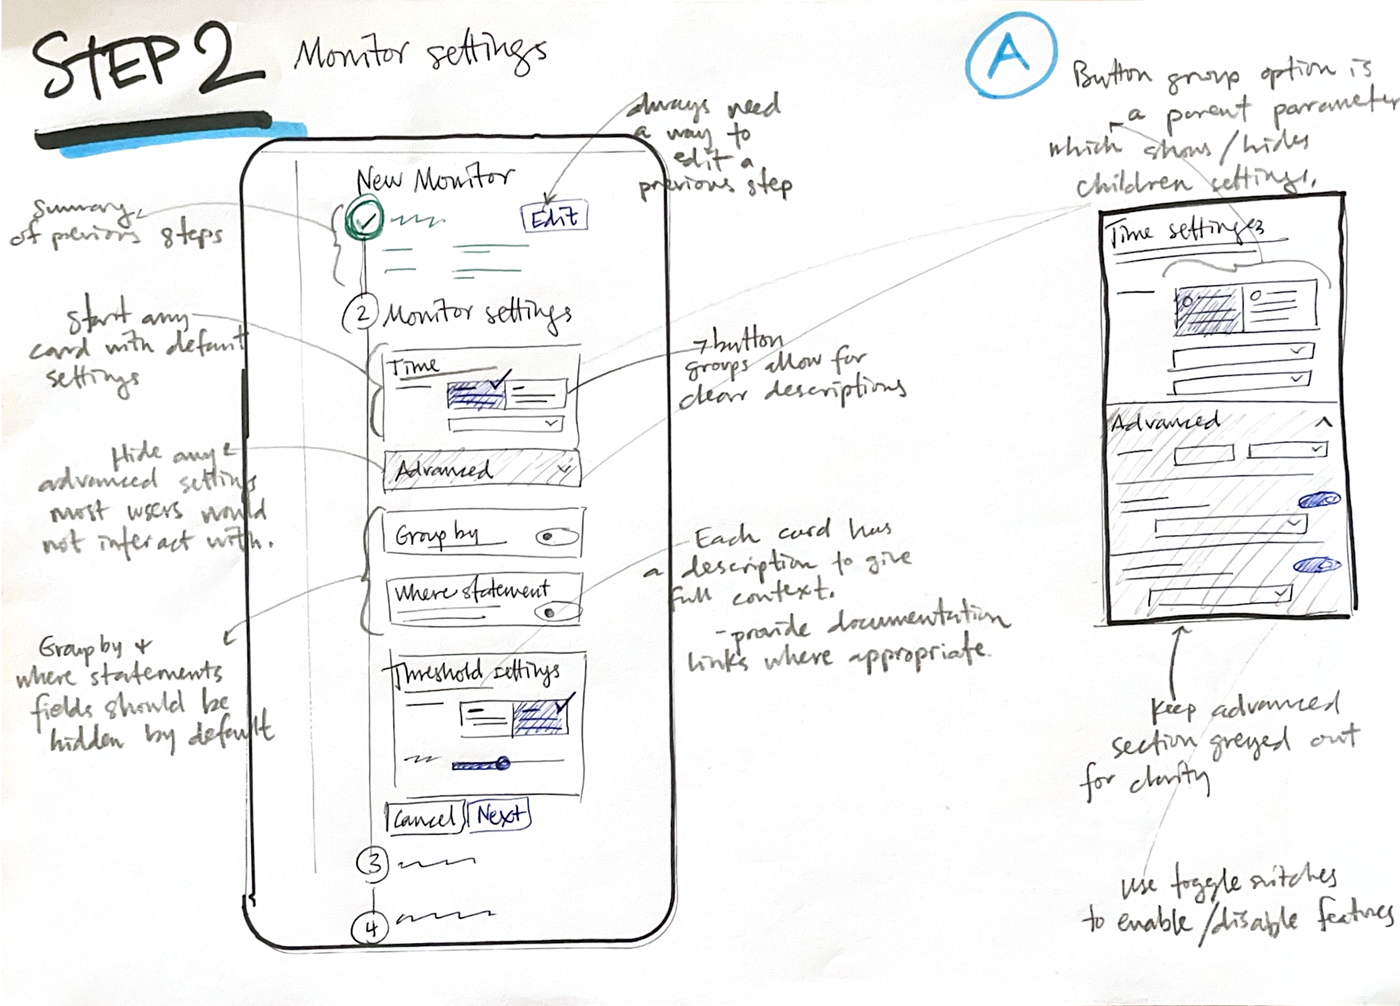 STEP 2
Monitor settings
always need
a way to
edit a
previous step
Summary
of previous steps
Start any
card with default
settings
Hide any
advanced setting
most users would
not interact with.
Group by +
where statements
fields should be
hidden by default
New Monitor
Edit
2
Monitor settings
Time
Advanced
Group by
Where statement
Threshold settings
Cancel
Next
3
4
button
groups allow for
clear descriptions
Each card has
a description to give
full context.
- provide documentation
links where appropriate.
A
Button group option is
a parent parameter
which shows/hides
children settings.
Time settings
Advanced
Keep advanced
section greyed out
for clarity
use toggle switches
to enable/disable features